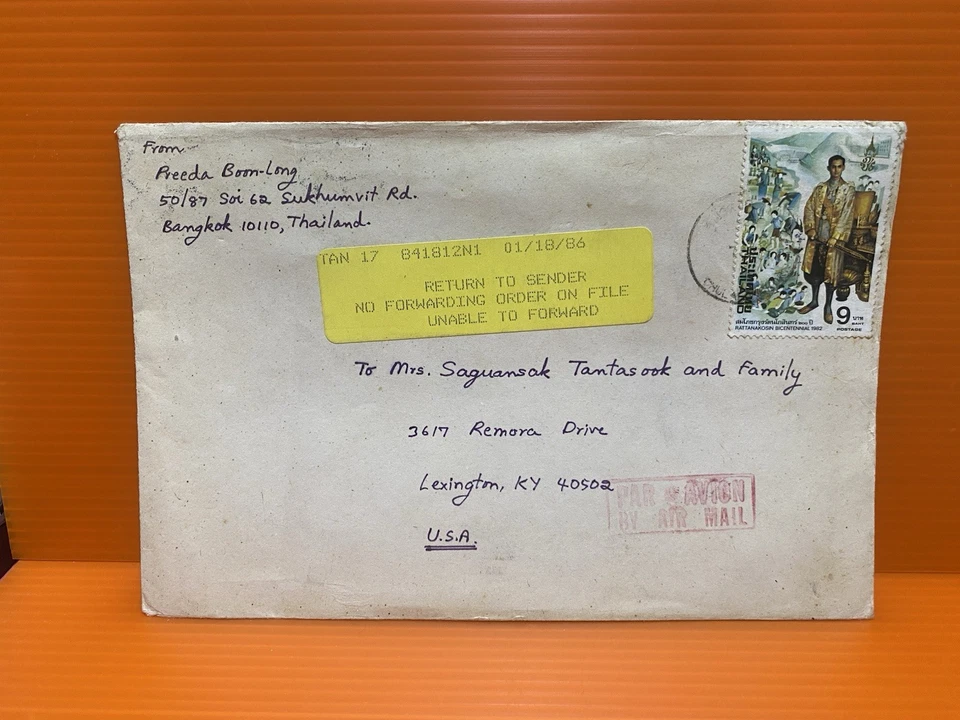 From
Preeda Boon-Long
50/87 Soi 62 Sukhumvit Rd.
Bangkok 10110, Thailand.
TAN 17 841812N1 01/18/86
RETURN TO SENDER
NO FORWARDING ORDER ON FILE
UNABLE TO FORWARD
ประเทศไทย
THAILAND
สมโภชกรุงรัตนโกสินทร์ ๒๐๐ ปี
RATTANAKOSIN BICENTENNIAL 1982
9 บาท
BAHT
POSTAGE
To Mrs. Saguansak Tantasook and Family
3617 Remora Drive
Lexington, KY 40502
U.S.A.
PAR AVION
BY AIR MAIL